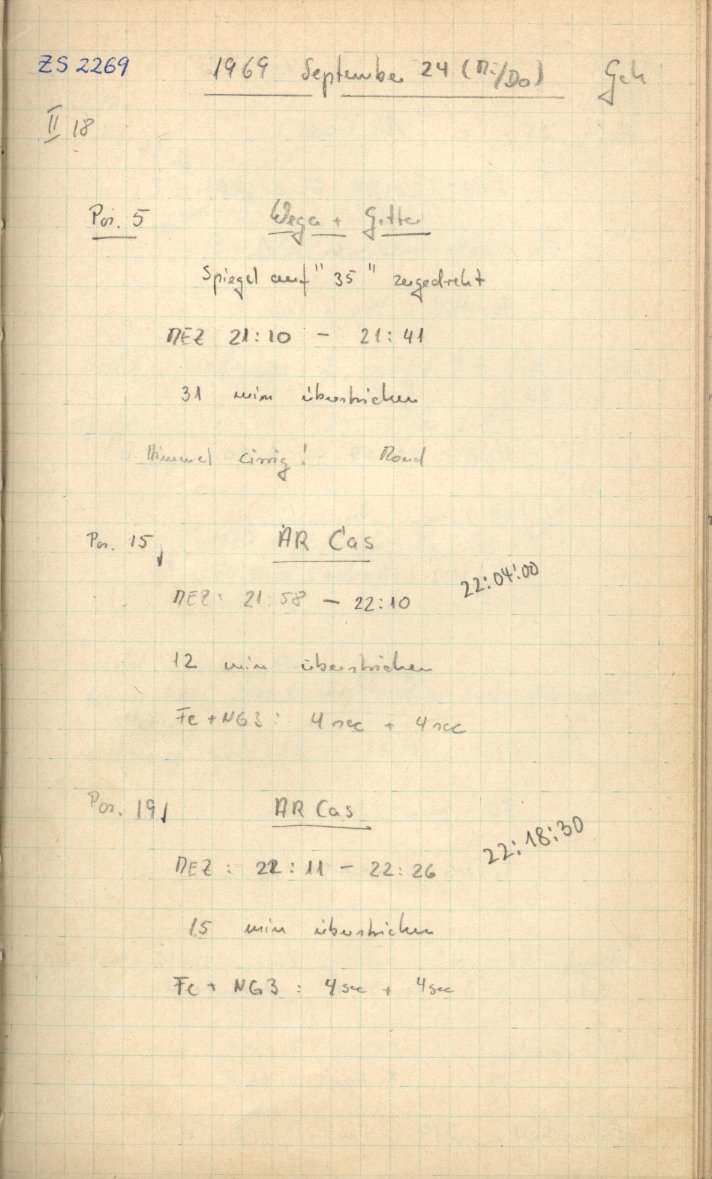 ZS 2269 1969 September 24 (Mi/Do) Geh
II 18
Pos. 5 Wega + Gitter
Spiegel auf "35" zugedreht
MEZ 21:10 - 21:41
31 min überstrichen
Himmel cirrig! Mond
Pos. 15 AR Cas
MEZ: 21:58 - 22:10 22:04:00
12 min überstrichen
Fe + NG3: 4 sec + 4 sec
Pos. 19 AR Cas
MEZ: 22:11 - 22:26 22:18:30
15 min überstrichen
Fe + NG3: 4 sec + 4 sec